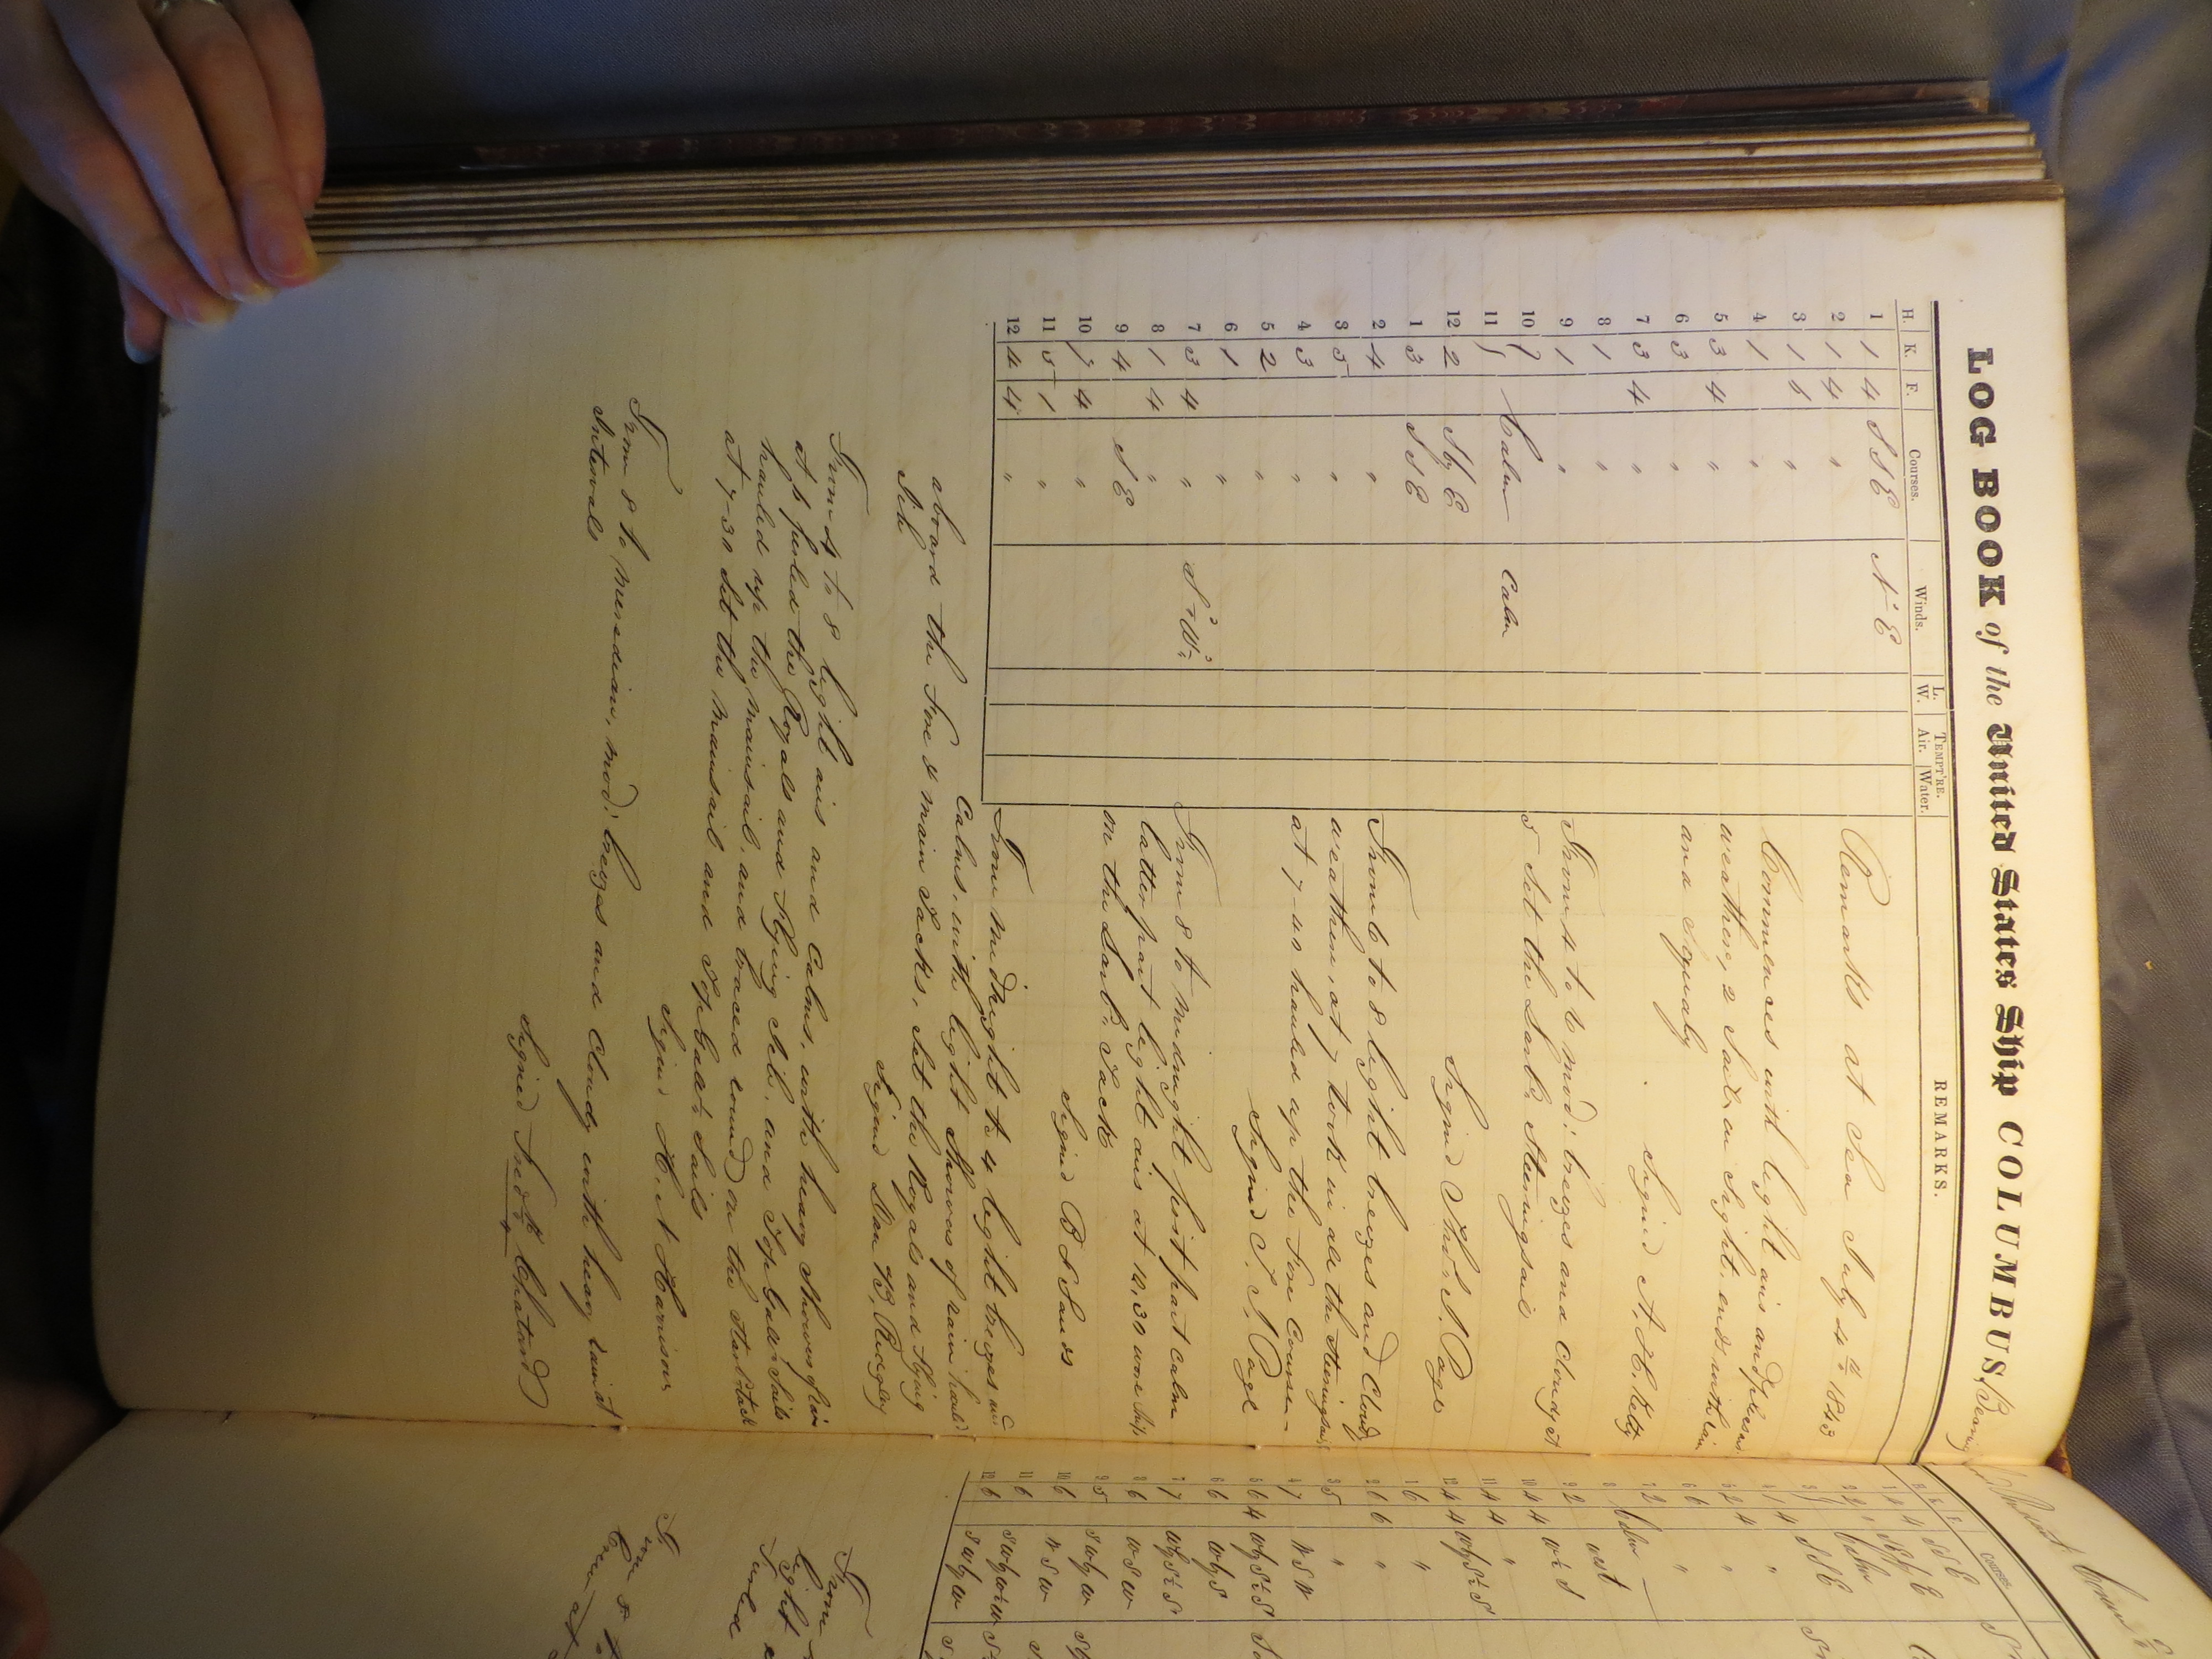 LOG BOOK of the United States Ship COLUMBUS, Bearing
H. K. F. Courses. Winds. L. W. TEMPT'RE. Air. Water. REMARKS.
1 1 4 S S E N E
2 1 4 "
3 1 6 "
4 1 "
5 3 4 "
6 3 "
7 3 4 "
8 1 "
9 1 "
10
11 Calm Calm
12 2 S by E
1 3 S S E
2 4 "
3 5 "
4 3 "
5 2 "
6 1 "
7 3 4 " S & W
8 1 4 "
9 4 S E
10 7 4 "
11 5 1 "
12 4 4 "
Remarks at Sea July 4th 1843
Commences with light airs and
weather, 2 Sail in Sight, ends with rain
and Squally
Signed A. H. Kelty
From 4 to 6 mod: breezes and Cloudy at
5 Set the Larb: Steeringsails
Signed Thos. J. Page
From 6 to 8 light breezes and Cloudy
weather, at 7 took in all the Steeringsails
at 7-40 hauled up the Fore Course
Signed T. J. Page
From 8 to midnight first part Calm
latter part light airs at 10,30 wore Ship
on the Larb: Tack
Signed B F Sands
From midnight to 4 light breezes and
Calms, with light Showers of rain hauled
aboard the Fore & main Tacks, Set the Royals and Flying
Jib
Signed Dan B. Ridgley
From 4 to 8 light airs and Calms, with heavy Showers of rain
at furled the Royals and Flying Jib, and Top Galt Sails
hauled up the mainsail, and braced round on the Starb tack
at 7-30 Set the mainsail and Top Galt Sails
Signed H. N Harrison
From 8 to meredian, mod: breezes and Cloudy with heavy rain at
Intervals
Signed Fredk Chatard
1 4 S S E
Calm
S S E
7 2 Calm
8 West
9 2 W & S
10 4 4 "
11 4 4 "
12 4 4
1 6 "
2 6 6 "
3 5 "
4 7 W S W
5 6 4
6 6 W by S
7 7
8 6 W S W
9 5
10 6 S W by W
11 6 W S W
12 6 S W by W
From
light
Furled